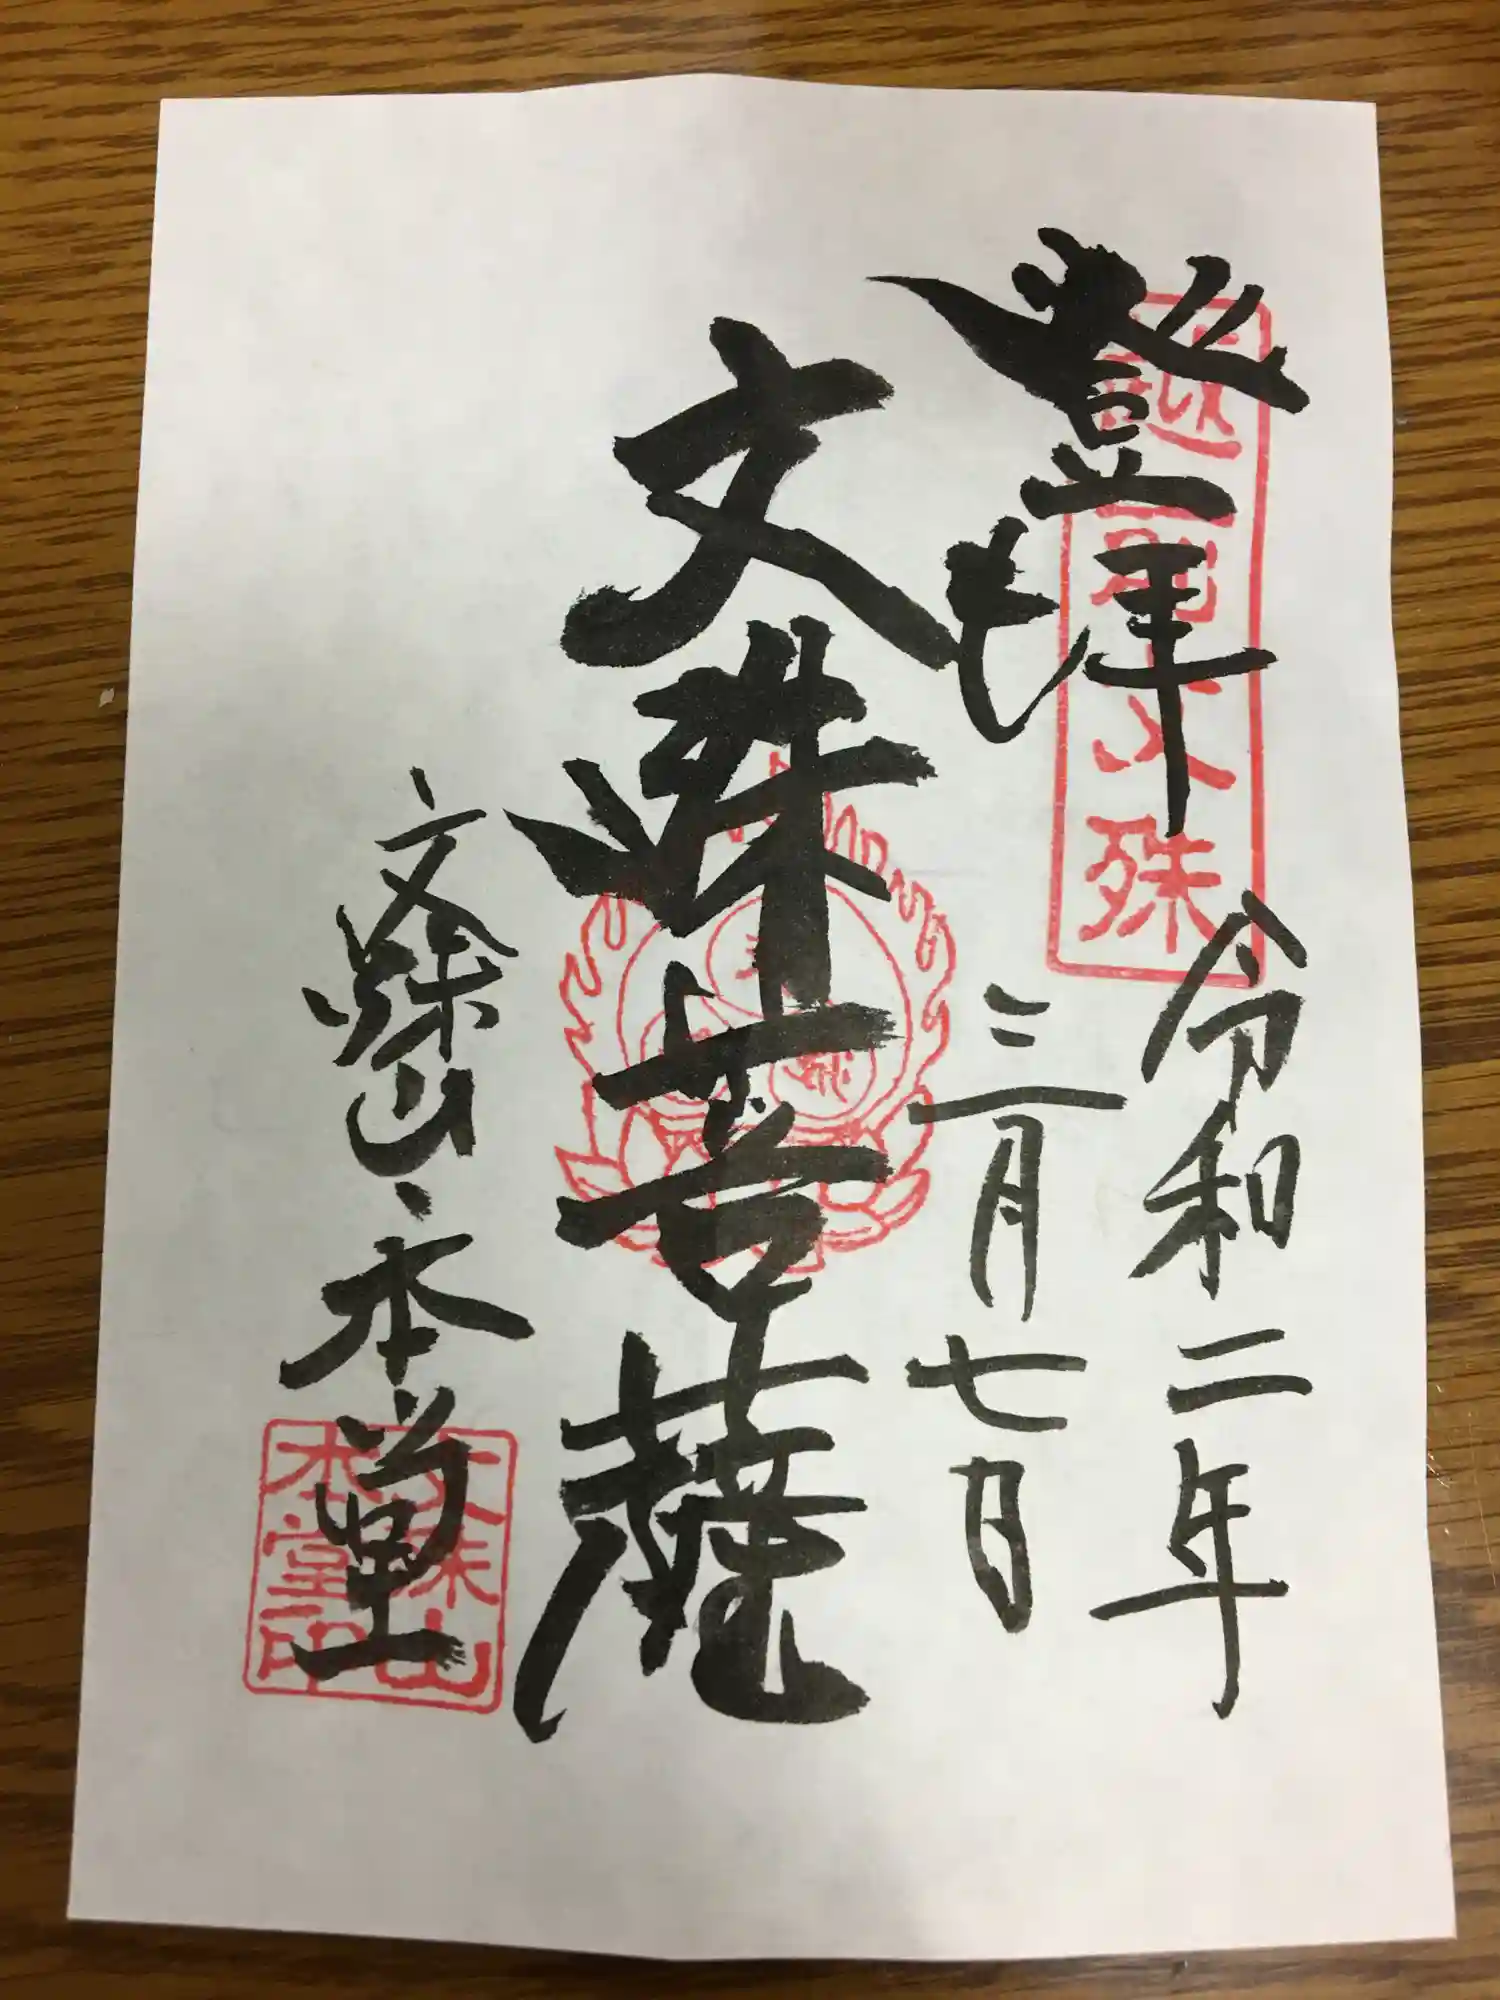 登拝
越文殊
令和二年
三月七日
文殊菩薩
文殊山、本堂
文殊山
本堂印